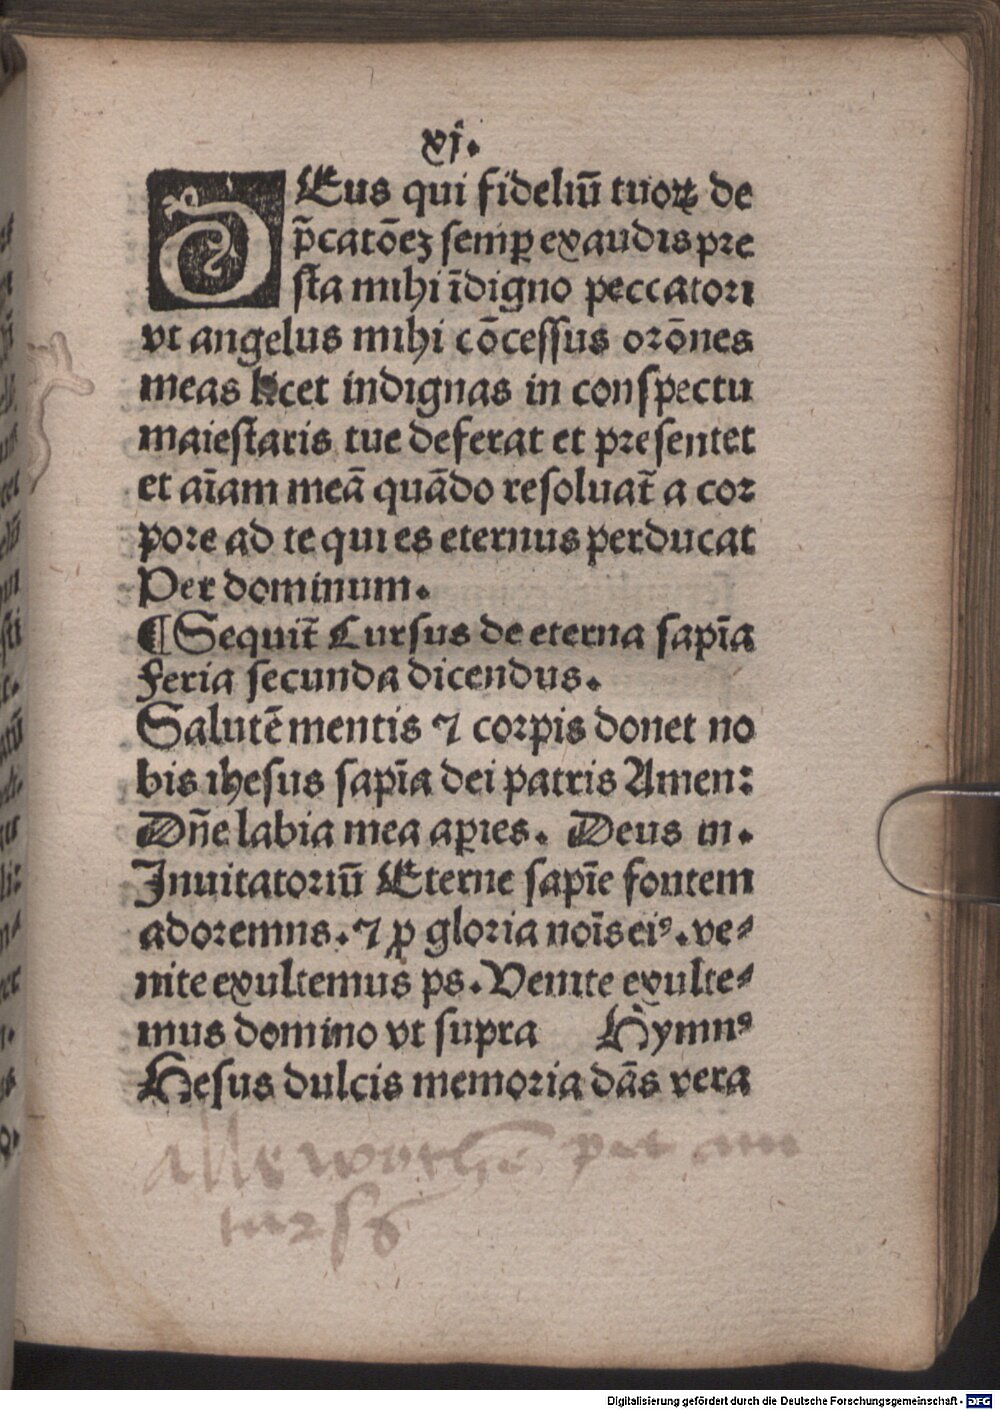 xj.
DEus qui fideliū tuoꝝ de
p̄catōeꝫ semꝑ exaudis pre
sta mihi īdigno peccatori
vt angelus mihi cōcessus orōnes
meas licet indignas in conspectu
maiestatis tue deferat et presentet
et aīam meā quādo resoluat̄ a cor
pore ad te qui es eternus perducat
Per dominum.
¶ Sequit̄ Cursus de eterna sapīa
feria secunda dicendus.
Salutē mentis ⁊ corpis donet no
bis ihesus sapīa dei patris Amen:
Dn̄e labia mea aꝑies. Deus in.
Inuitatoriū Eterne sapīe fontem
adoremns. ⁊ ꝓ gloria noīs eiꝰ. ve⸗
nite exultemus ps. Venite exulte⸗
mus domino vt supra Hymnꝰ
Hesus dulcis memoria dās vera
alle
Digitalisierung gefördert durch die Deutsche Forschungsgemeinschaft - DFG